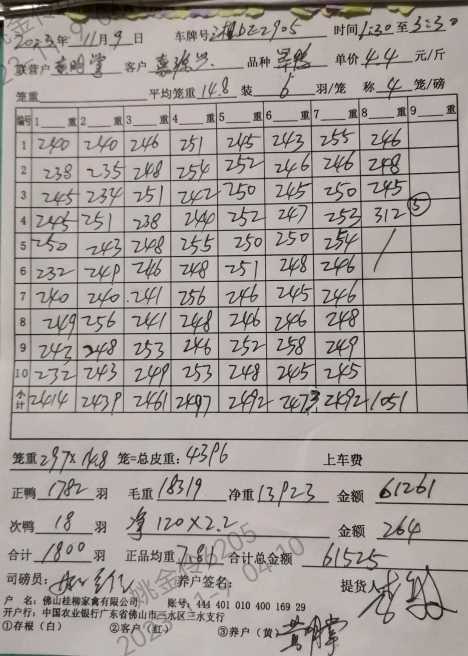 2023年 11月 9日 车牌号 湘bZ2905 时间 1:30 至 3:30
联营户 黄明掌 客户 品种 单价 4.4 元/斤
笼重 平均笼重 14.8 装 6 羽/笼 称 4 笼/磅
编号 1 重 2 重 3 重 4 重 5 重 6 重 7 重 8 重 9 重
1 240 240 246 251 245 243 255 246
2 238 235 248 254 252 246 246 248
3 245 234 251 242 250 245 250 245
4 245 251 238 240 252 247 253 312 ⑤
5 250 243 248 255 250 250 254 /
6 232 249 246 248 251 248 246
7 240 240 241 256 246 245 246
8 249 256 241 248 246 246 248
9 243 248 253 246 252 258 249
10 232 243 249 253 248 245 245
小计 2414 2439 2461 2497 2492 2473 2492 1051
笼重 297×14.8 笼=总皮重: 4396 上车费
正鸭 1782 羽 毛重 18319 净重 13923 金额 61261
次鸭 18 羽 净 120×2.2 金额 264
合计 1800 羽 正品均重 7.81 合计总金额 61525
司磅员: 养户签名: 提货人
户 名: 佛山桂柳家禽有限公司 账号: 444 401 010 400 169 29
开户行: 中国农业银行广东省佛山市三水区三水支行
①存根(白) ②客户(红) ③养户(黄) 黄明掌